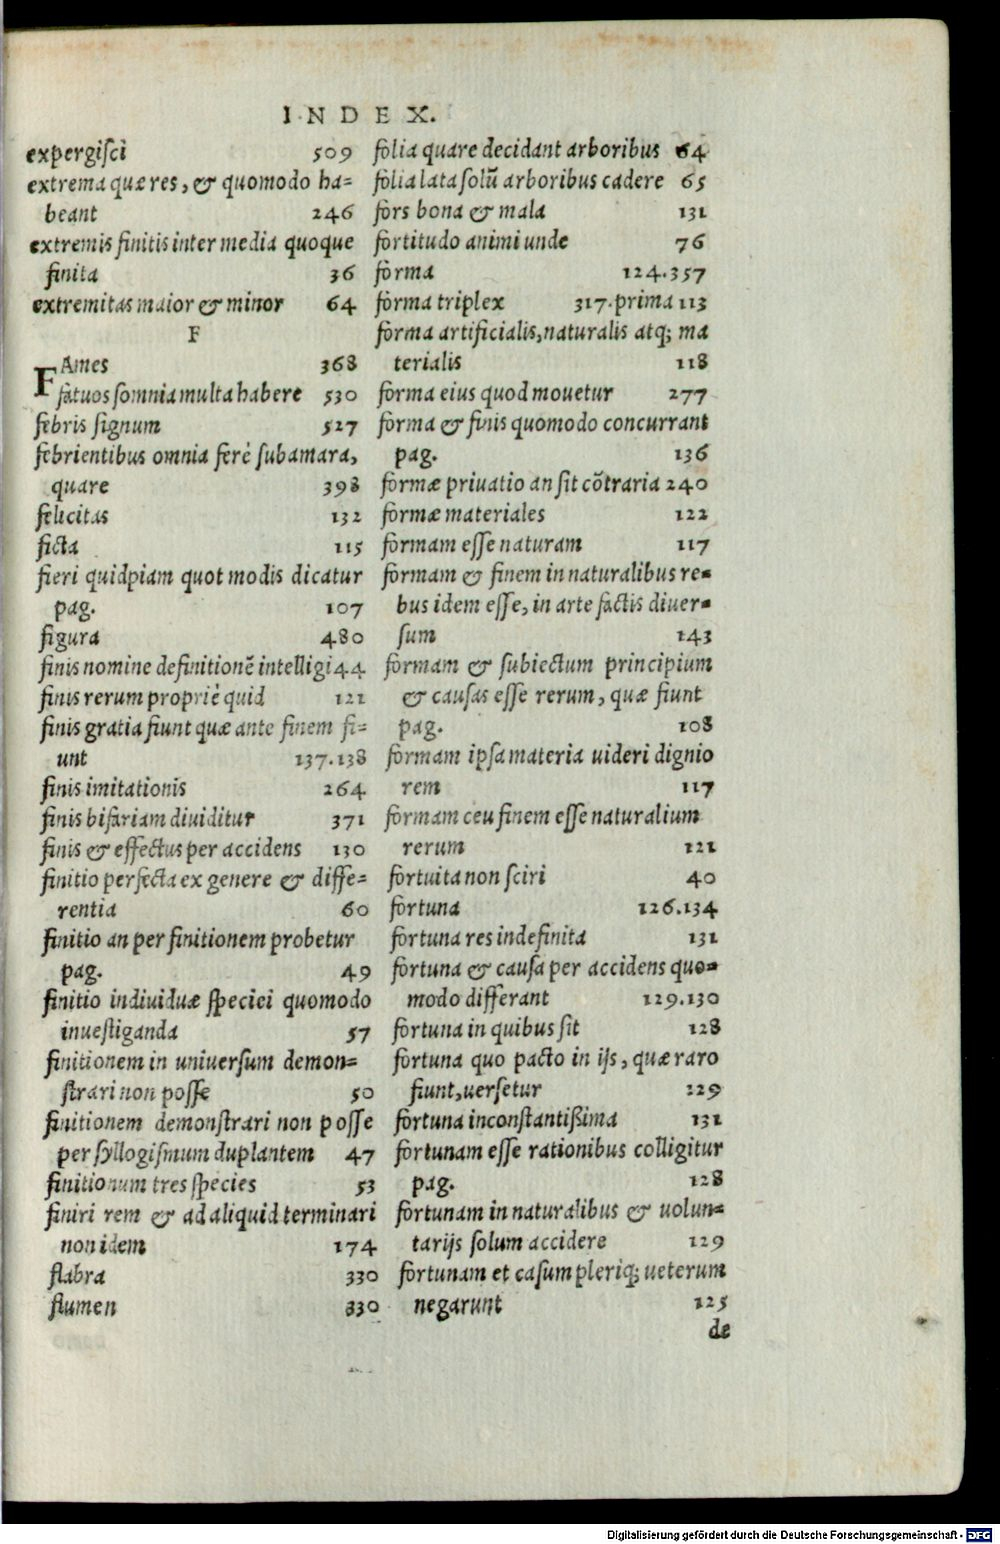 INDEX.
expergisci 509
extrema quæ res, & quomodo ha-
beant 246
extremis finitis inter media quoque
finita 36
extremitas maior & minor 64
F
FAmes 368
fatuos somnia multa habere 530
febris signum 527
febrientibus omnia ferè subamara,
quare 398
felicitas 132
ficta 115
fieri quidpiam quot modis dicatur
pag. 107
figura 480
finis nomine definitionẽ intelligi 44
finis rerum propriè quid 121
finis gratia fiunt quæ ante finem fi-
unt 137.138
finis imitationis 264
finis bifariam diuiditur 371
finis & effectus per accidens 130
finitio perfecta ex genere & diffe-
rentia 60
finitio an per finitionem probetur
pag. 49
finitio indiuiduæ speciei quomodo
inuestiganda 57
finitionem in uniuersum demon-
strari non posse 50
finitionem demonstrari non posse
per syllogismum duplantem 47
finitionum tres species 53
finiri rem & ad aliquid terminari
non idem 174
flabra 330
flumen 330
folia quare decidant arboribus 64
folia lata solũ arboribus cadere 65
fors bona & mala 131
fortitudo animi unde 76
forma 124.357
forma triplex 317.prima 113
forma artificialis, naturalis atq; ma
terialis 118
forma eius quod mouetur 277
forma & finis quomodo concurrant
pag. 136
formæ priuatio an sit cõtraria 240
formæ materiales 122
formam esse naturam 117
formam & finem in naturalibus re-
bus idem esse, in arte factis diuer-
sum 143
formam & subiectum principium
& causas esse rerum, quæ fiunt
pag. 108
formam ipsa materia uideri dignio
rem 117
formam ceu finem esse naturalium
rerum 121
fortuita non sciri 40
fortuna 126.134
fortuna res indefinita 131
fortuna & causa per accidens quo-
modo differant 129.130
fortuna in quibus sit 128
fortuna quo pacto in ijs, quæ raro
fiunt, uersetur 129
fortuna inconstantißima 131
fortunam esse rationibus colligitur
pag. 128
fortunam in naturalibus & uolun-
tarijs solum accidere 129
fortunam et casum pleriq; ueterum
negarunt 125
de
Digitalisierung gefördert durch die Deutsche Forschungsgemeinschaft - DFG